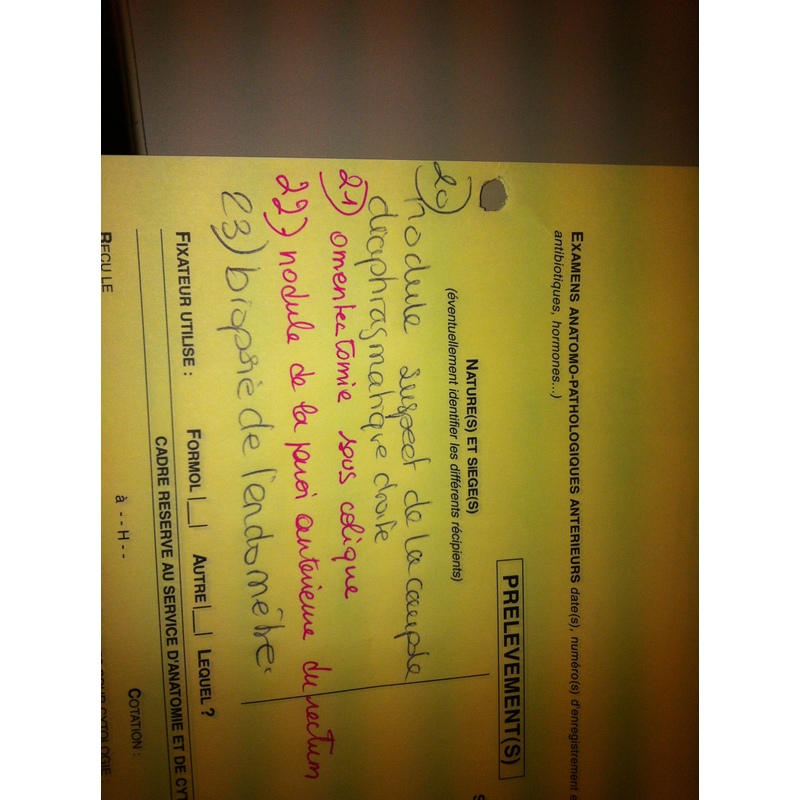 EXAMENS ANATOMO-PATHOLOGIQUES ANTERIEURS date(s), numéro(s) d'enregistrement
antibiotiques, hormones...)
PRELEVEMENT(S)
NATURE(S) ET SIEGE(S)
(éventuellement identifier les différents récipients)
20) nodule suspect de la coupole
diaphragmatique droite
21) omentectomie sous colique
22) nodule de la paroi anterieure du rectum
23) biopsie de l'endomètre.
FIXATEUR UTILISE : FORMOL |__| AUTRE |__| LEQUEL ?
CADRE RESERVE AU SERVICE D'ANATOMIE ET DE
COTATION :
RECU LE à - - H - -